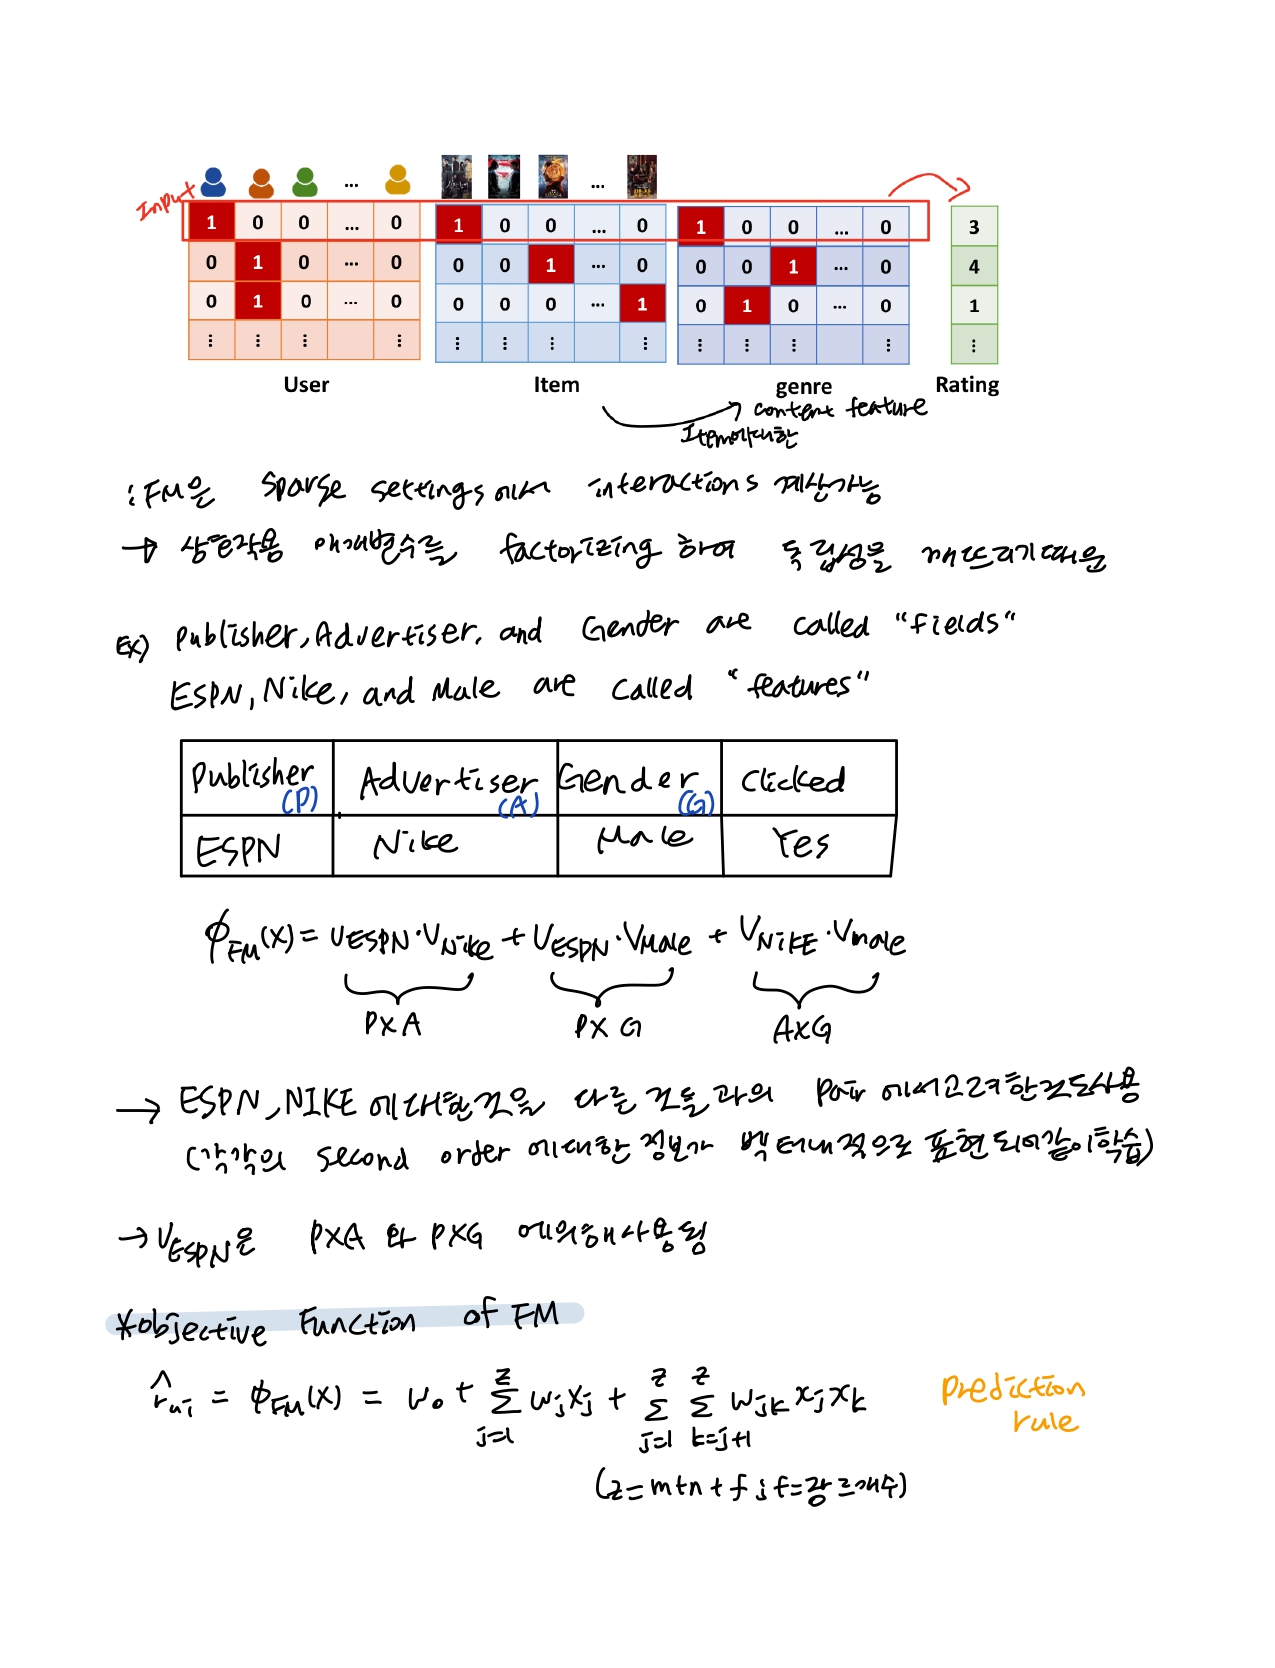 Input
1 0 0 ... 0 1 0 0 ... 0 1 0 0 ... 0 3
0 1 0 ... 0 0 0 1 ... 0 0 0 1 ... 0 4
0 1 0 ... 0 0 0 0 ... 1 0 1 0 ... 0 1
⋮ ⋮ ⋮ ⋮ ⋮ ⋮ ⋮ ⋮ ⋮ ⋮ ⋮ ⋮ ⋮
User Item genre Rating
content feature
Item에대한
: FM은 sparse settings에서 interactions 계산가능
→ 상호작용 매개변수를 factorizing 하여 독립성을 깨뜨리기때문
Ex) Publisher, Advertiser, and Gender are called "fields"
ESPN, Nike, and Male are called "features"
Publisher (P) Advertiser (A) Gender (G) Clicked
ESPN Nike Male Yes
ϕ_FM(x) = V_ESPN·V_Nike + V_ESPN·V_Male + V_NIKE·V_male
P×A P×G A×G
→ ESPN, NIKE 에대한것을 다른 것들과의 pair 에서고려한것도사용
(각각의 second order 에대한 정보가 벡터내적으로 표현되어같이학습)
→ V_ESPN은 P×A 와 P×G 에의해사용됨
*objective Function of FM
r̂_ui = ϕ_FM(x) = w_0 + Σ_{j=1}^{z} w_j x_j + Σ_{j=1}^{z} Σ_{k=j+1}^{z} w_jk x_j x_k
prediction
rule
(z = m+n+f ; f=장르개수)